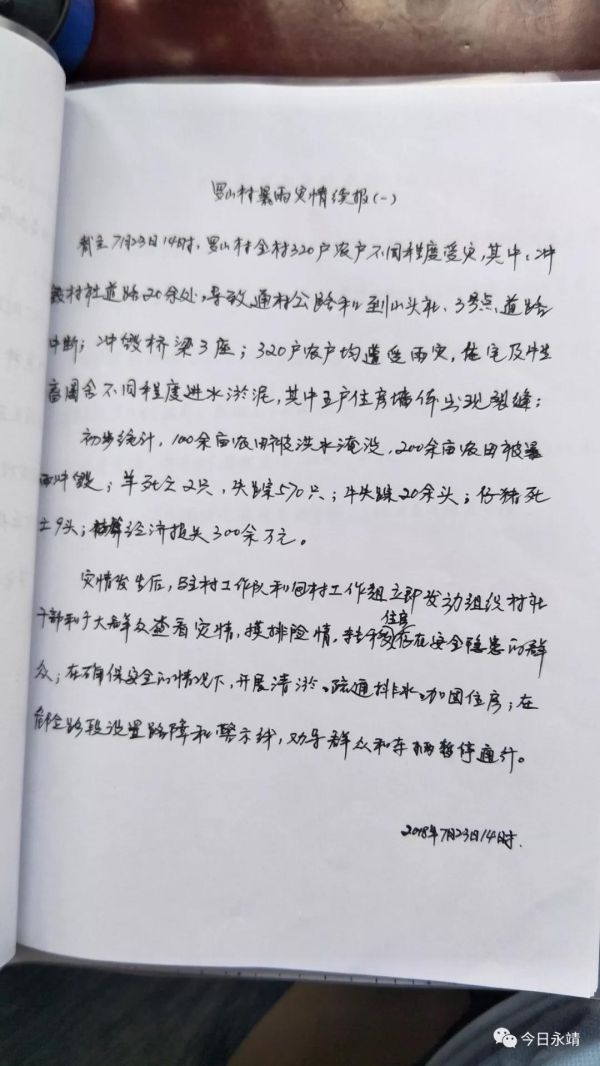 罗山村暴雨灾情续报(一)
截至7月23日14时,罗山村全村320户农户不同程度受灾,其中:冲
毁村社道路20余处,导致通村公路和到山头社、3号点道路
中断;冲毁桥梁3座;320户农户均遭受雨灾,住宅及牲
畜圈舍不同程度进水淤泥,其中五户住房墙体出现裂缝;
初步统计,100余亩农田被洪水淹没,200余亩农田被暴
雨冲毁;羊死亡2只,失踪570只;牛失踪20余头;仔猪死
亡9头;核算经济损失300余万元。
灾情发生后,驻村工作队和包村工作组立即发动组织村社
干部和广大群众查看灾情,摸排险情,转移住房存在安全隐患的群
众;在确保安全的情况下,开展清淤、疏通排水、加固住房;在
危险路段设置路障和警示线,劝导群众和车辆暂停通行。
2018年7月23日14时.
今日永靖